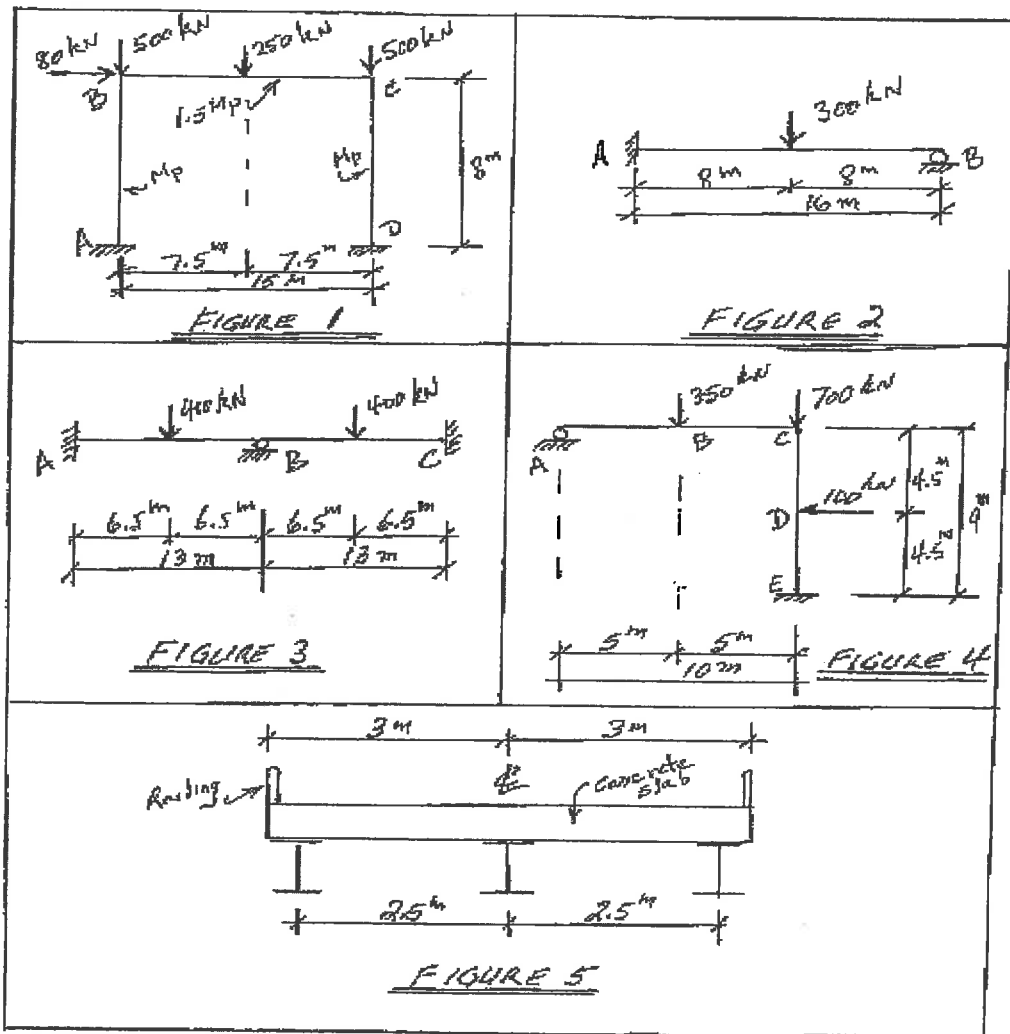 80 kN
500 kN
250 kN
500 kN
B
C
1.5Mp
Mp
Mp
8m
A
D
7.5m
7.5m
15m
FIGURE 1
300 kN
A
B
8m
8m
16m
FIGURE 2
400 kN
400 kN
A
B
C
6.5m
6.5m
6.5m
6.5m
13m
13m
FIGURE 3
350 kN
700 kN
A
B
C
100 kN
D
4.5m
9m
4.5m
E
5m
5m
10m
FIGURE 4
3m
3m
Railing
concrete
slab
2.5m
2.5m
FIGURE 5